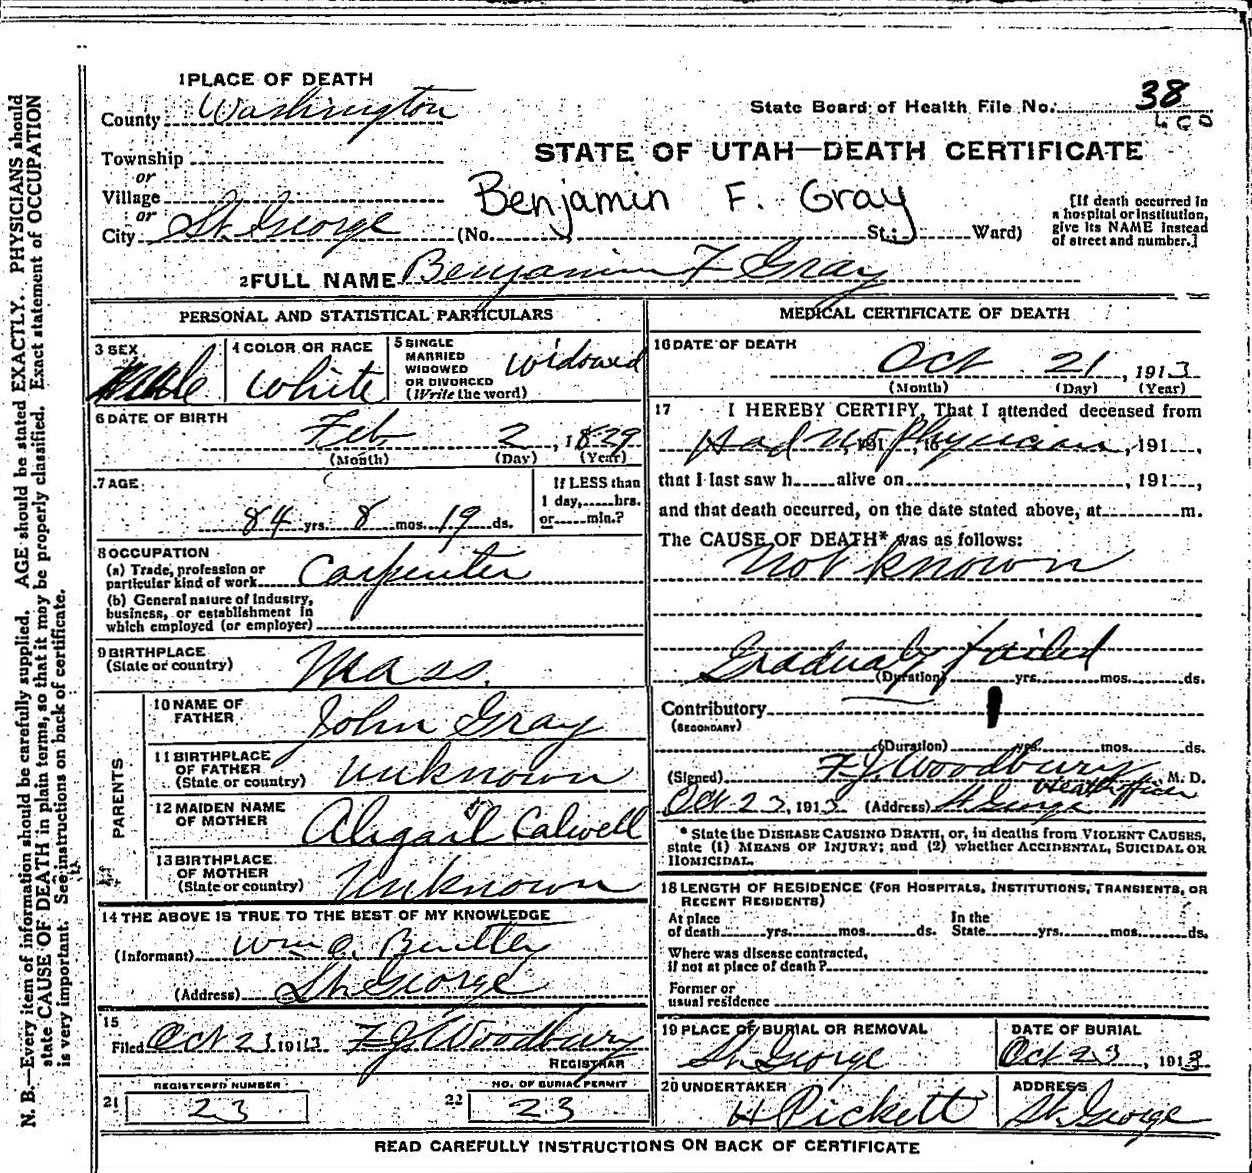 1 PLACE OF DEATH
County Washington
State Board of Health File No. 38
Township
or
Village
or
City St. George
STATE OF UTAH—DEATH CERTIFICATE
Benjamin F. Gray
(No. St.; Ward)
[If death occurred in
a hospital or institution,
give its NAME instead
of street and number.]
2 FULL NAME Benjamin F Gray
PERSONAL AND STATISTICAL PARTICULARS
3 SEX
Male
4 COLOR OR RACE
White
5 SINGLE
MARRIED
WIDOWED
OR DIVORCED
(Write the word)
Widowed
6 DATE OF BIRTH
Feb 2, 1829
(Month) (Day) (Year)
7 AGE
84 yrs. 8 mos. 19 ds.
If LESS than
1 day, hrs.
or min.?
8 OCCUPATION
(a) Trade, profession or
particular kind of work Carpenter
(b) General nature of industry,
business, or establishment in
which employed (or employer)
9 BIRTHPLACE
(State or country)
Mass.
PARENTS
10 NAME OF
FATHER
John Gray
11 BIRTHPLACE
OF FATHER
(State or country)
Unknown
12 MAIDEN NAME
OF MOTHER
Abigail Calwell
13 BIRTHPLACE
OF MOTHER
(State or country)
Unknown
14 THE ABOVE IS TRUE TO THE BEST OF MY KNOWLEDGE
(Informant) Wm C. Bentley
(Address) St. George
15
Filed Oct 23 1913 F. J. Woodbury
REGISTRAR
REGISTERED NUMBER
21 23
NO. OF BURIAL PERMIT
22 23
MEDICAL CERTIFICATE OF DEATH
16 DATE OF DEATH
Oct 21, 1913
(Month) (Day) (Year)
17 I HEREBY CERTIFY, That I attended deceased from
Had no Physician, 191 , to , 191 ,
that I last saw h alive on , 191 ,
and that death occurred, on the date stated above, at m.
The CAUSE OF DEATH* was as follows:
Not known
Gradualy failed
(Duration) yrs. mos. ds.
Contributory
(SECONDARY)
(Duration) yrs. mos. ds.
(Signed) F. J. Woodbury M. D.
Health officer
Oct 23, 1913 (Address) St George
* State the DISEASE CAUSING DEATH, or, in deaths from VIOLENT CAUSES,
state (1) MEANS OF INJURY; and (2) whether ACCIDENTAL, SUICIDAL OR
HOMICIDAL.
18 LENGTH OF RESIDENCE (FOR HOSPITALS, INSTITUTIONS, TRANSIENTS, OR
RECENT RESIDENTS)
At place
of death yrs. mos. ds.
In the
State yrs. mos. ds.
Where was disease contracted,
if not at place of death?
Former or
usual residence
19 PLACE OF BURIAL OR REMOVAL
St. George
DATE OF BURIAL
Oct 23, 1913
20 UNDERTAKER
H Pickett
ADDRESS
St. George
READ CAREFULLY INSTRUCTIONS ON BACK OF CERTIFICATE
N. B.—Every item of information should be carefully supplied. AGE should be stated EXACTLY. PHYSICIANS should
state CAUSE OF DEATH in plain terms, so that it may be properly classified. Exact statement of OCCUPATION
is very important. See instructions on back of certificate.